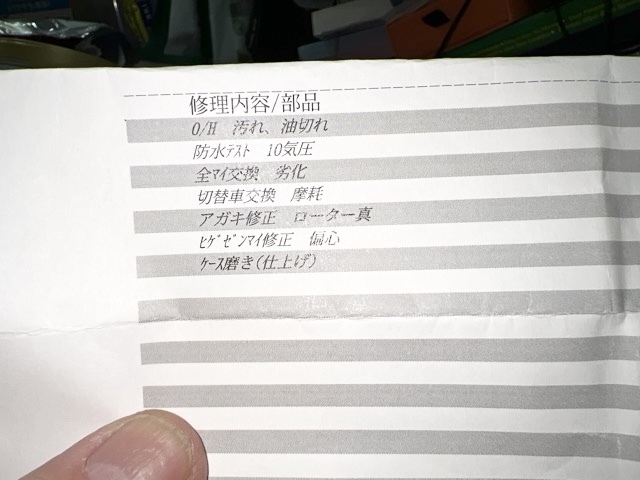 修理内容/部品
O/H 汚れ、油切れ
防水ﾃｽﾄ 10気圧
全マイ交換 劣化
切替車交換 摩耗
アガキ修正 ローター真
ﾋｹﾞｾﾞﾝﾏｲ修正 偏心
ｹｰｽ磨き(仕上げ)